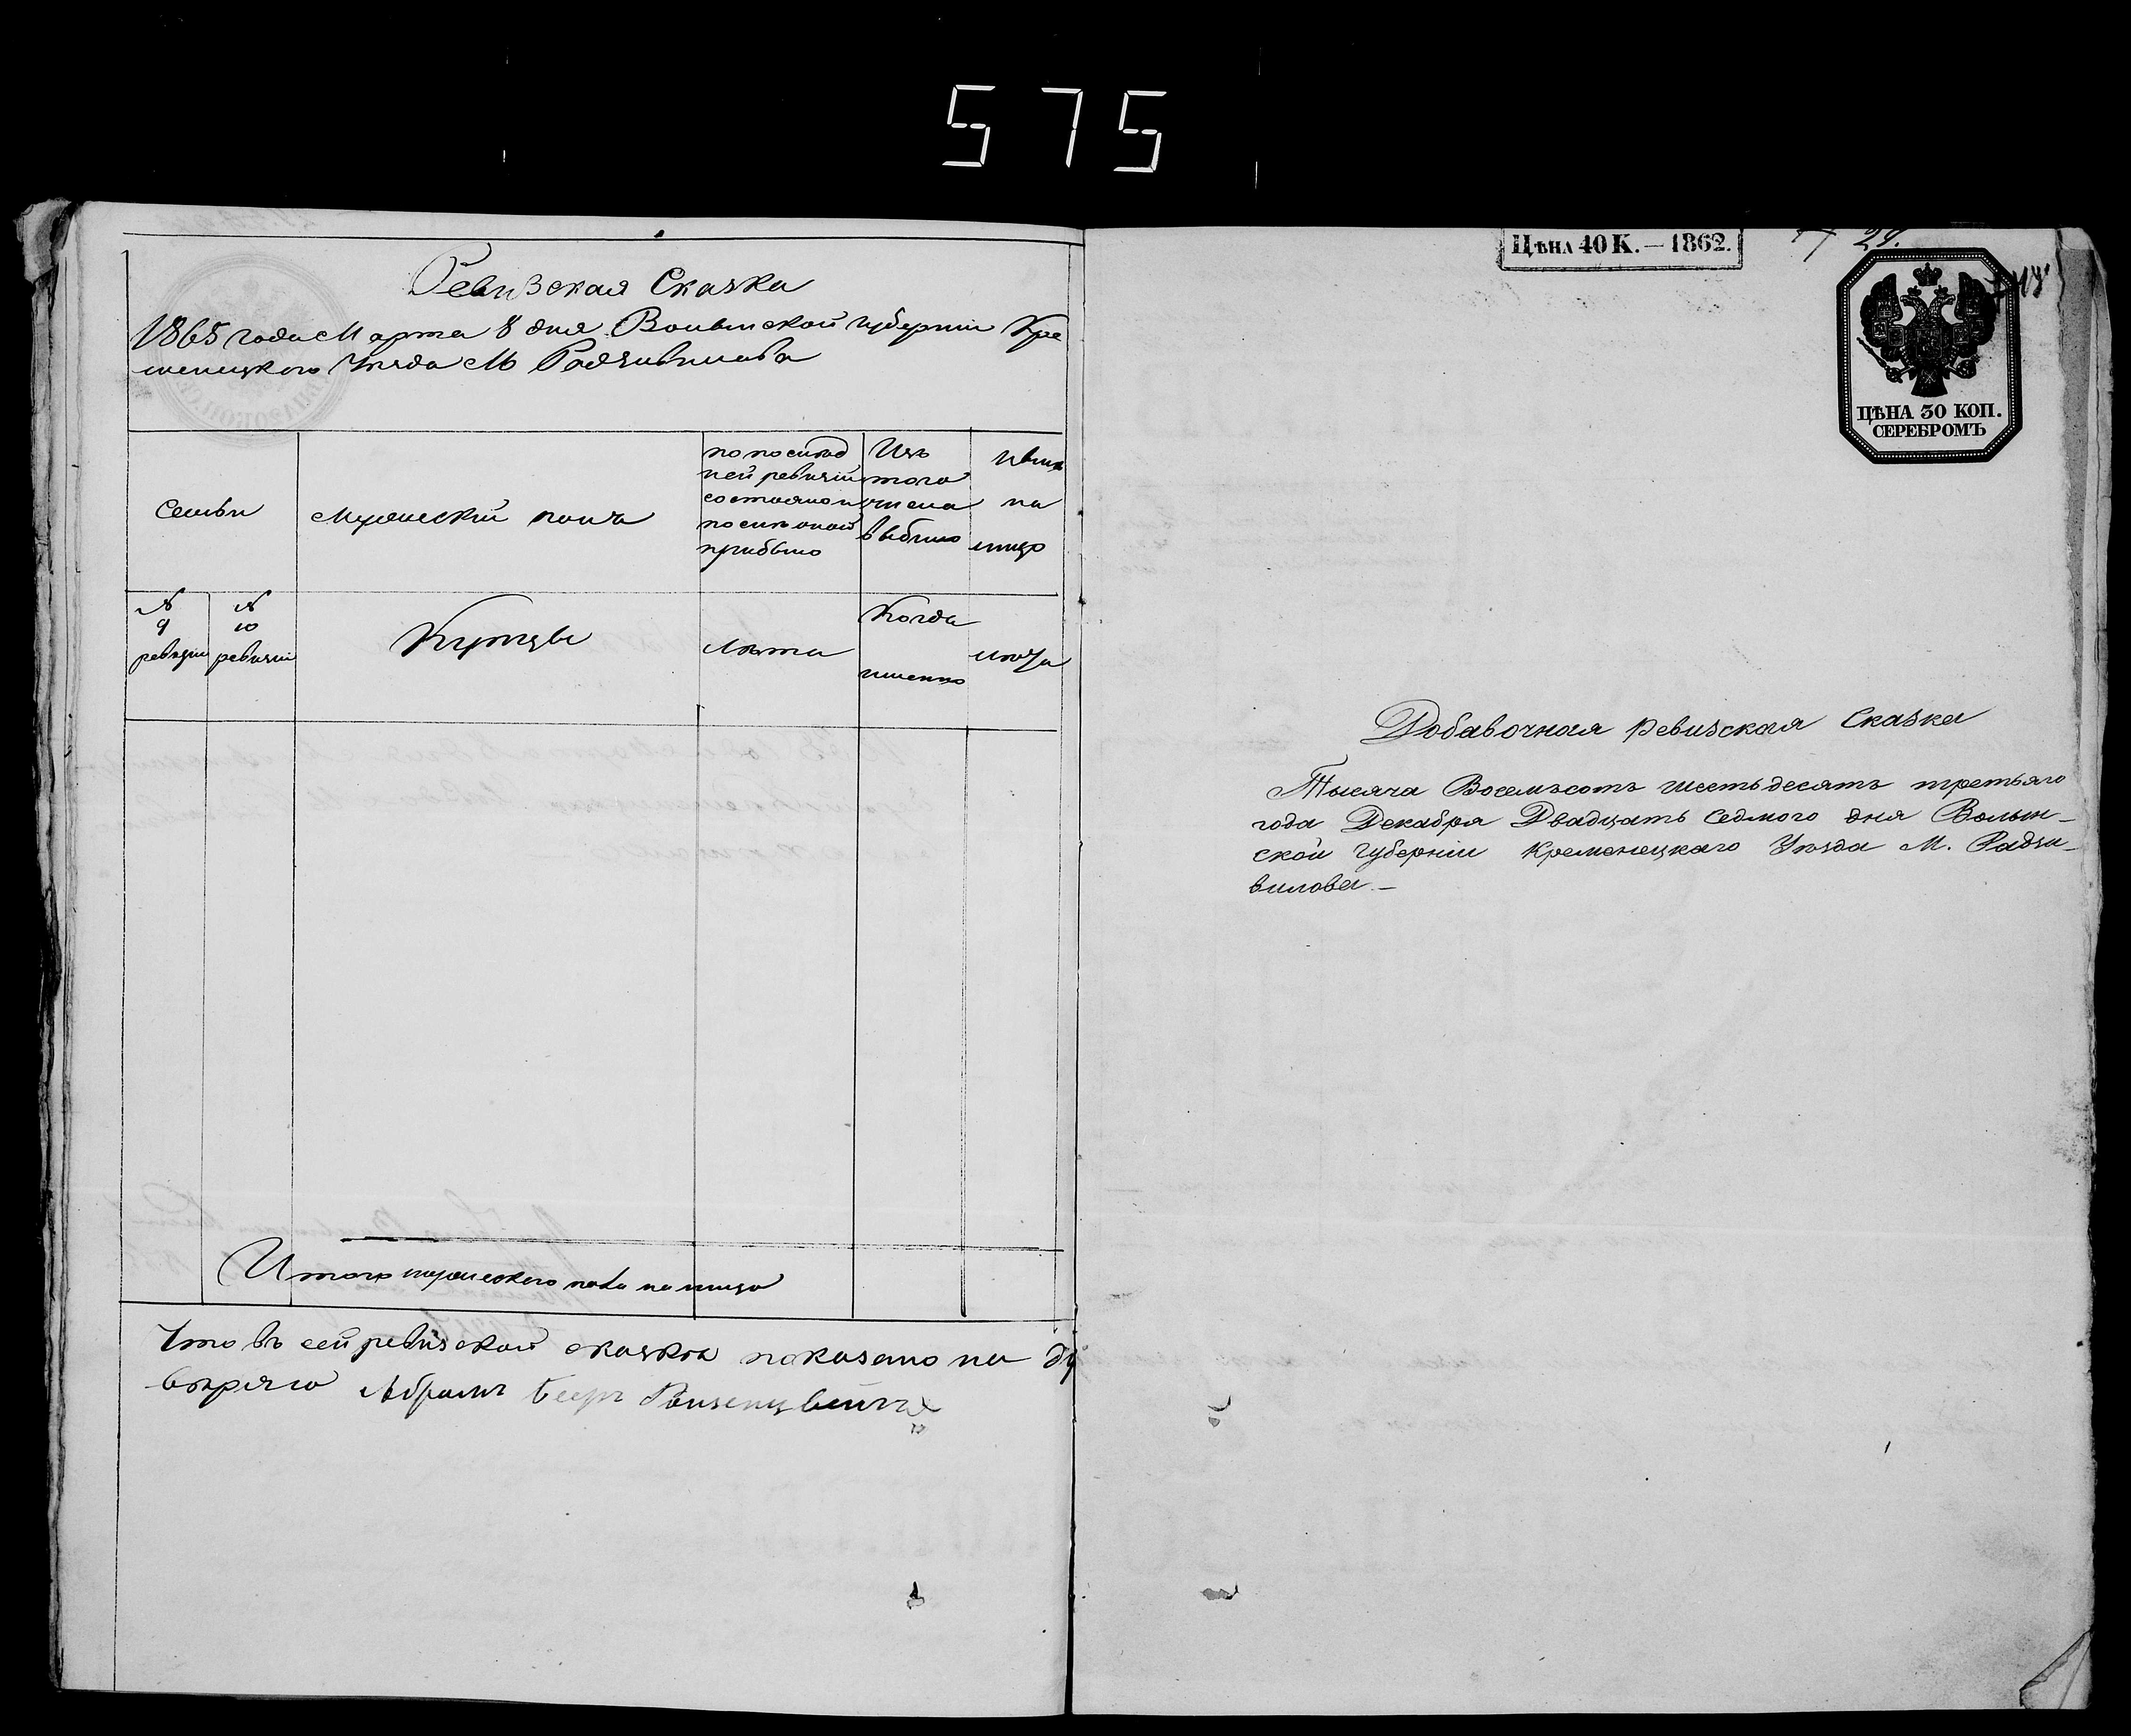 575
Ревизская Сказка
1865 года Марта 8 дня Волынской губернии Кре
менецкого Уезда М Радзивилова
Семьи
мужеский полъ
по послед
ней ревизіи
состояло и
после оной
прибыло
Изъ
того
числа
выбыло
на
лицо
№
9
ревизіи
№
10
ревизіи
Купцы
Лета
Когда
именно
лета
Итого мужеского пола на лицо
Что въ сей ревизской сказке показано на
веряю Абрамъ Беръ
Цѣна 40 К. — 1862.
24.
ЦѢНА 30 КОП.
СЕРЕБРОМЪ
Добавочная ревизская Сказка
Тысяча Восемьсотъ шестьдесятъ третьяго
года Декабря Двадцать седмого дня Волын-
ской Губерніи Кременецкаго Уѣзда М. Радзи-
вилова —